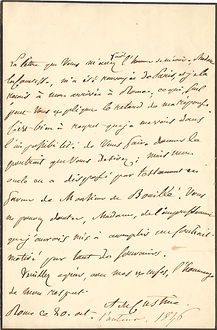 La lettre que Vous m'avez fait l'honneur de m'écrire, Madame
la Comtesse, m'a été renvoyée de Paris et je la
reçois à mon arrivée à Rome, ce qui fait
pour Vous expliquer le retard de ma réponse.
bien à regret que je me vois dans
l'impossibilité de Vous faire donner la
que Vous désirez; mais mon
oncle en a disposé par testament en
faveur de Madame de Bouillé. Vous
ne pouvez douter, Madame, de l'empressement
que j'aurois mis à accomplir un souhait
motivé par tant de souvenirs.
Veuillez agréer avec mes excuses, l'hommage
de mon respect.
A. de Custine
Rome ce 20 oct. 1846